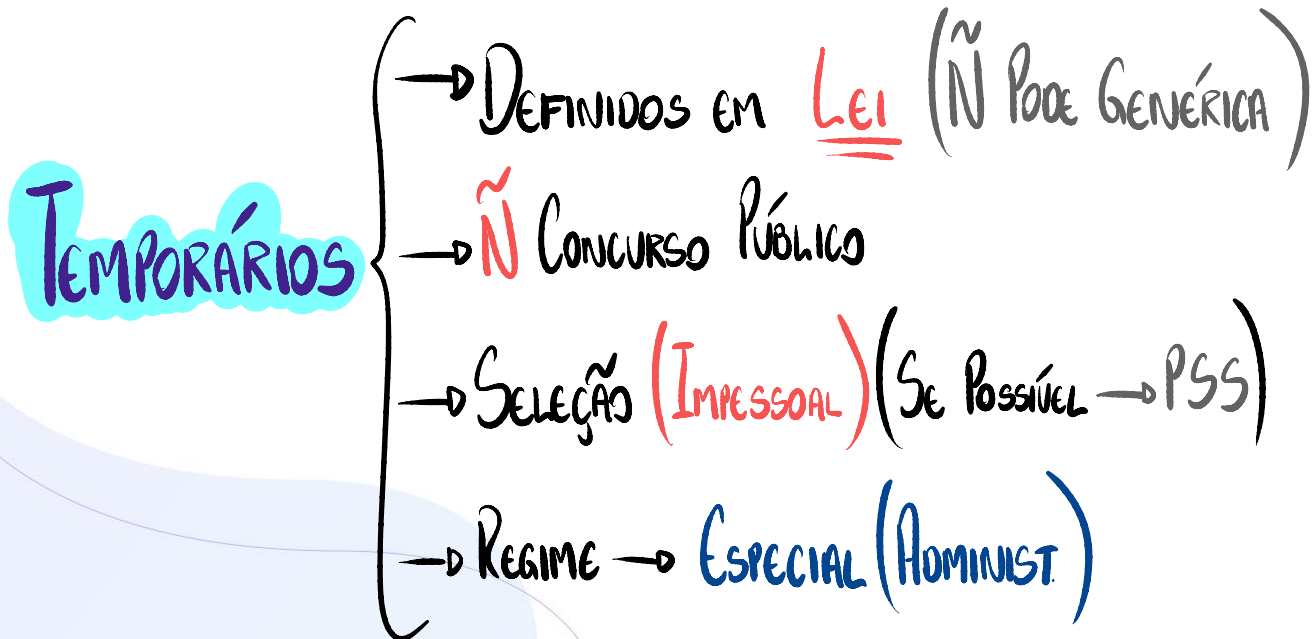 TEMPORÁRIOS
→ DEFINIDOS EM LEI (Ñ PODE GENÉRICA)
→ Ñ CONCURSO PÚBLICO
→ SELEÇÃO (IMPESSOAL) (SE POSSÍVEL → PSS)
→ REGIME → ESPECIAL (ADMINIST.)